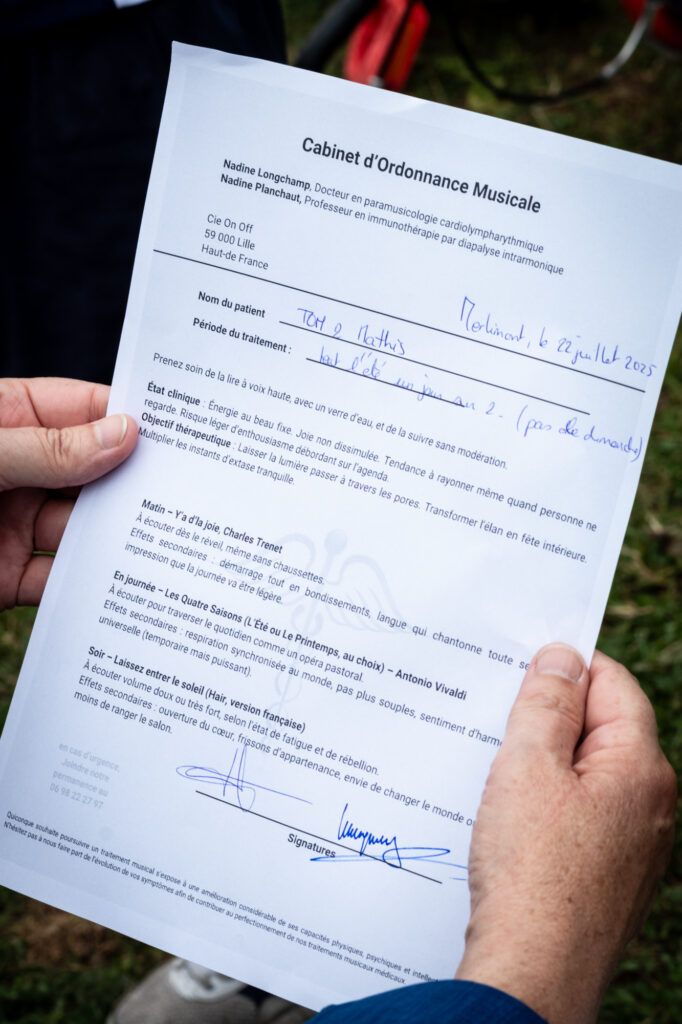 Cabinet d'Ordonnance Musicale
Nadine Longchamp, Docteur en paramusicologie cardiolympharythmique
Nadine Planchaut, Professeur en immunothérapie par diapalyse intrarmonique
Cie On Off
59 000 Lille
Haut-de France
Merlimont, le 22 juillet 2025
Nom du patient TOM & Mathis
Période du traitement : tout l'été un jour sur 2. (pas le dimanche)
Prenez soin de la lire à voix haute, avec un verre d'eau, et de la suivre sans modération.
État clinique : Énergie au beau fixe. Joie non dissimulée. Tendance à rayonner même quand personne ne
regarde. Risque léger d'enthousiasme débordant sur l'agenda.
Objectif thérapeutique : Laisser la lumière passer à travers les pores. Transformer l'élan en fête intérieure.
Multiplier les instants d'extase tranquille.
Matin – Y'a d'la joie, Charles Trenet
À écouter dès le réveil, même sans chaussettes.
Effets secondaires : démarrage tout en bondissements, langue qui chantonne toute se
impression que la journée va être légère.
En journée – Les Quatre Saisons (L'Été ou Le Printemps, au choix) – Antonio Vivaldi
À écouter pour traverser le quotidien comme un opéra pastoral.
Effets secondaires : respiration synchronisée au monde, pas plus souples, sentiment d'harm
universelle (temporaire mais puissant).
Soir – Laissez entrer le soleil (Hair, version française)
À écouter volume doux ou très fort, selon l'état de fatigue et de rébellion.
Effets secondaires : ouverture du cœur, frissons d'appartenance, envie de changer le monde ou
moins de ranger le salon.
en cas d'urgence,
Joindre notre
permanence au
06 98 22 27 97
Signatures
Quiconque souhaite poursuivre un traitement musical s'expose à une amélioration considérable de ses capacités physiques, psychiques et intellect
N'hésitez pas à nous faire part de l'évolution de vos symptômes afin de contribuer au perfectionnement de nos traitements musicaux médicaux.